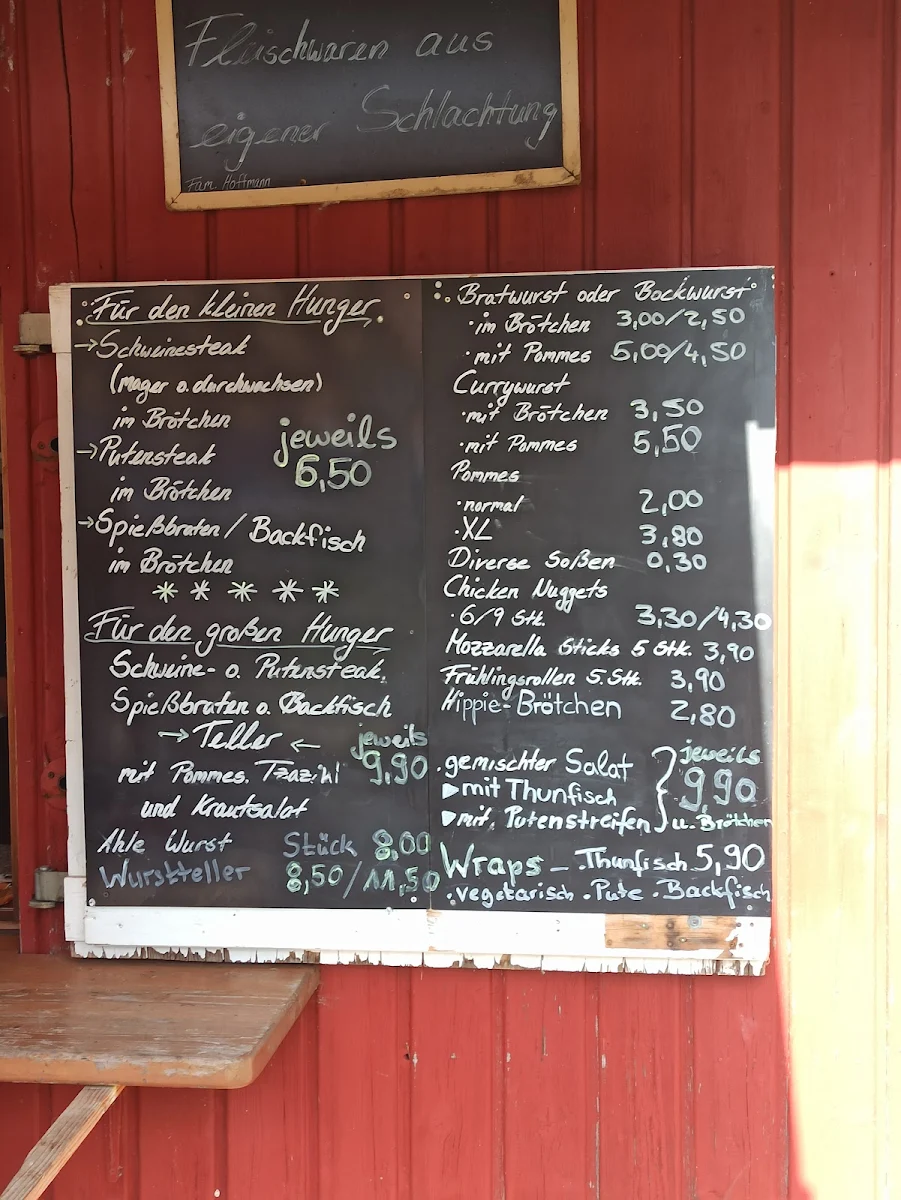 Fleischwaren aus
eigener Schlachtung
Fam. Hoffmann
Für den kleinen Hunger
→Schweinesteak
(mager o. durchwachsen)
im Brötchen
→Putensteak
im Brötchen
jeweils
6,50
→Spießbraten / Backfisch
im Brötchen
* * * * *
Für den großen Hunger
Schweine- o. Putensteak,
Spießbraten o. Backfisch
→ Teller ← jeweils
mit Pommes, Tzaziki 9,90
und Krautsalat
Ahle Wurst Stück 8,00
Wurstteller 8,50/11,50
Bratwurst oder Bockwurst
·im Brötchen 3,00/2,50
·mit Pommes 5,00/4,50
Currywurst
·mit Brötchen 3,50
·mit Pommes 5,50
Pommes
·normal 2,00
·XL 3,80
Diverse Soßen 0,30
Chicken Nuggets
·6/9 Stk. 3,30/4,30
Mozzarella Sticks 5 Stk. 3,90
Frühlingsrollen 5 Stk. 3,90
Hippie-Brötchen 2,80
·gemischter Salat jeweils
▶mit Thunfisch 9,90
▶mit Putenstreifen u. Brötchen
Wraps – ·Thunfisch 5,90
·vegetarisch ·Pute ·Backfisch